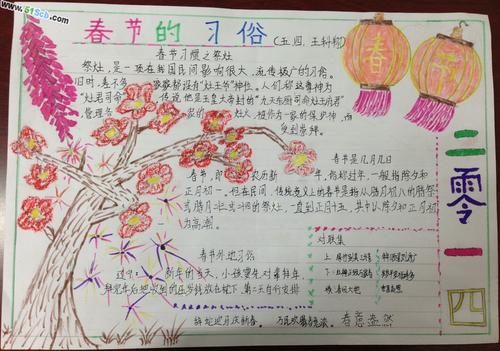 www.51Scb.com
春节的习俗(五四,王科称)
春节习惯之祭灶
祭灶,是一项在我国民间影响很大、流传极广的习俗。
旧时,差不多家家都设有"灶王爷"神位。人们称这尊神为
"灶君司命",传说他是玉皇大帝封的"九天东厨司命灶王府君"
管理各家的灶火,被作为一家的保护神,而
受到崇拜。
春节
春节是几月几日
春节,即农历新年,俗称过年,一般指除夕和
正月初一。但在民间,传统意义上的春节是指从腊月初八的腊祭
或腊月廿三或廿四的祭灶,一直到正月十五,其中以除夕和正月初一
为高潮。
春节外地习俗
辽宁:新年的当天,小孩要先对着拜年,
拜完年后把收到的压岁钱放在枕下,第二天自行安排
对联集
上
下
横
春意盎然
辞蛇迎马庆新春。
春意盎然
二零一四